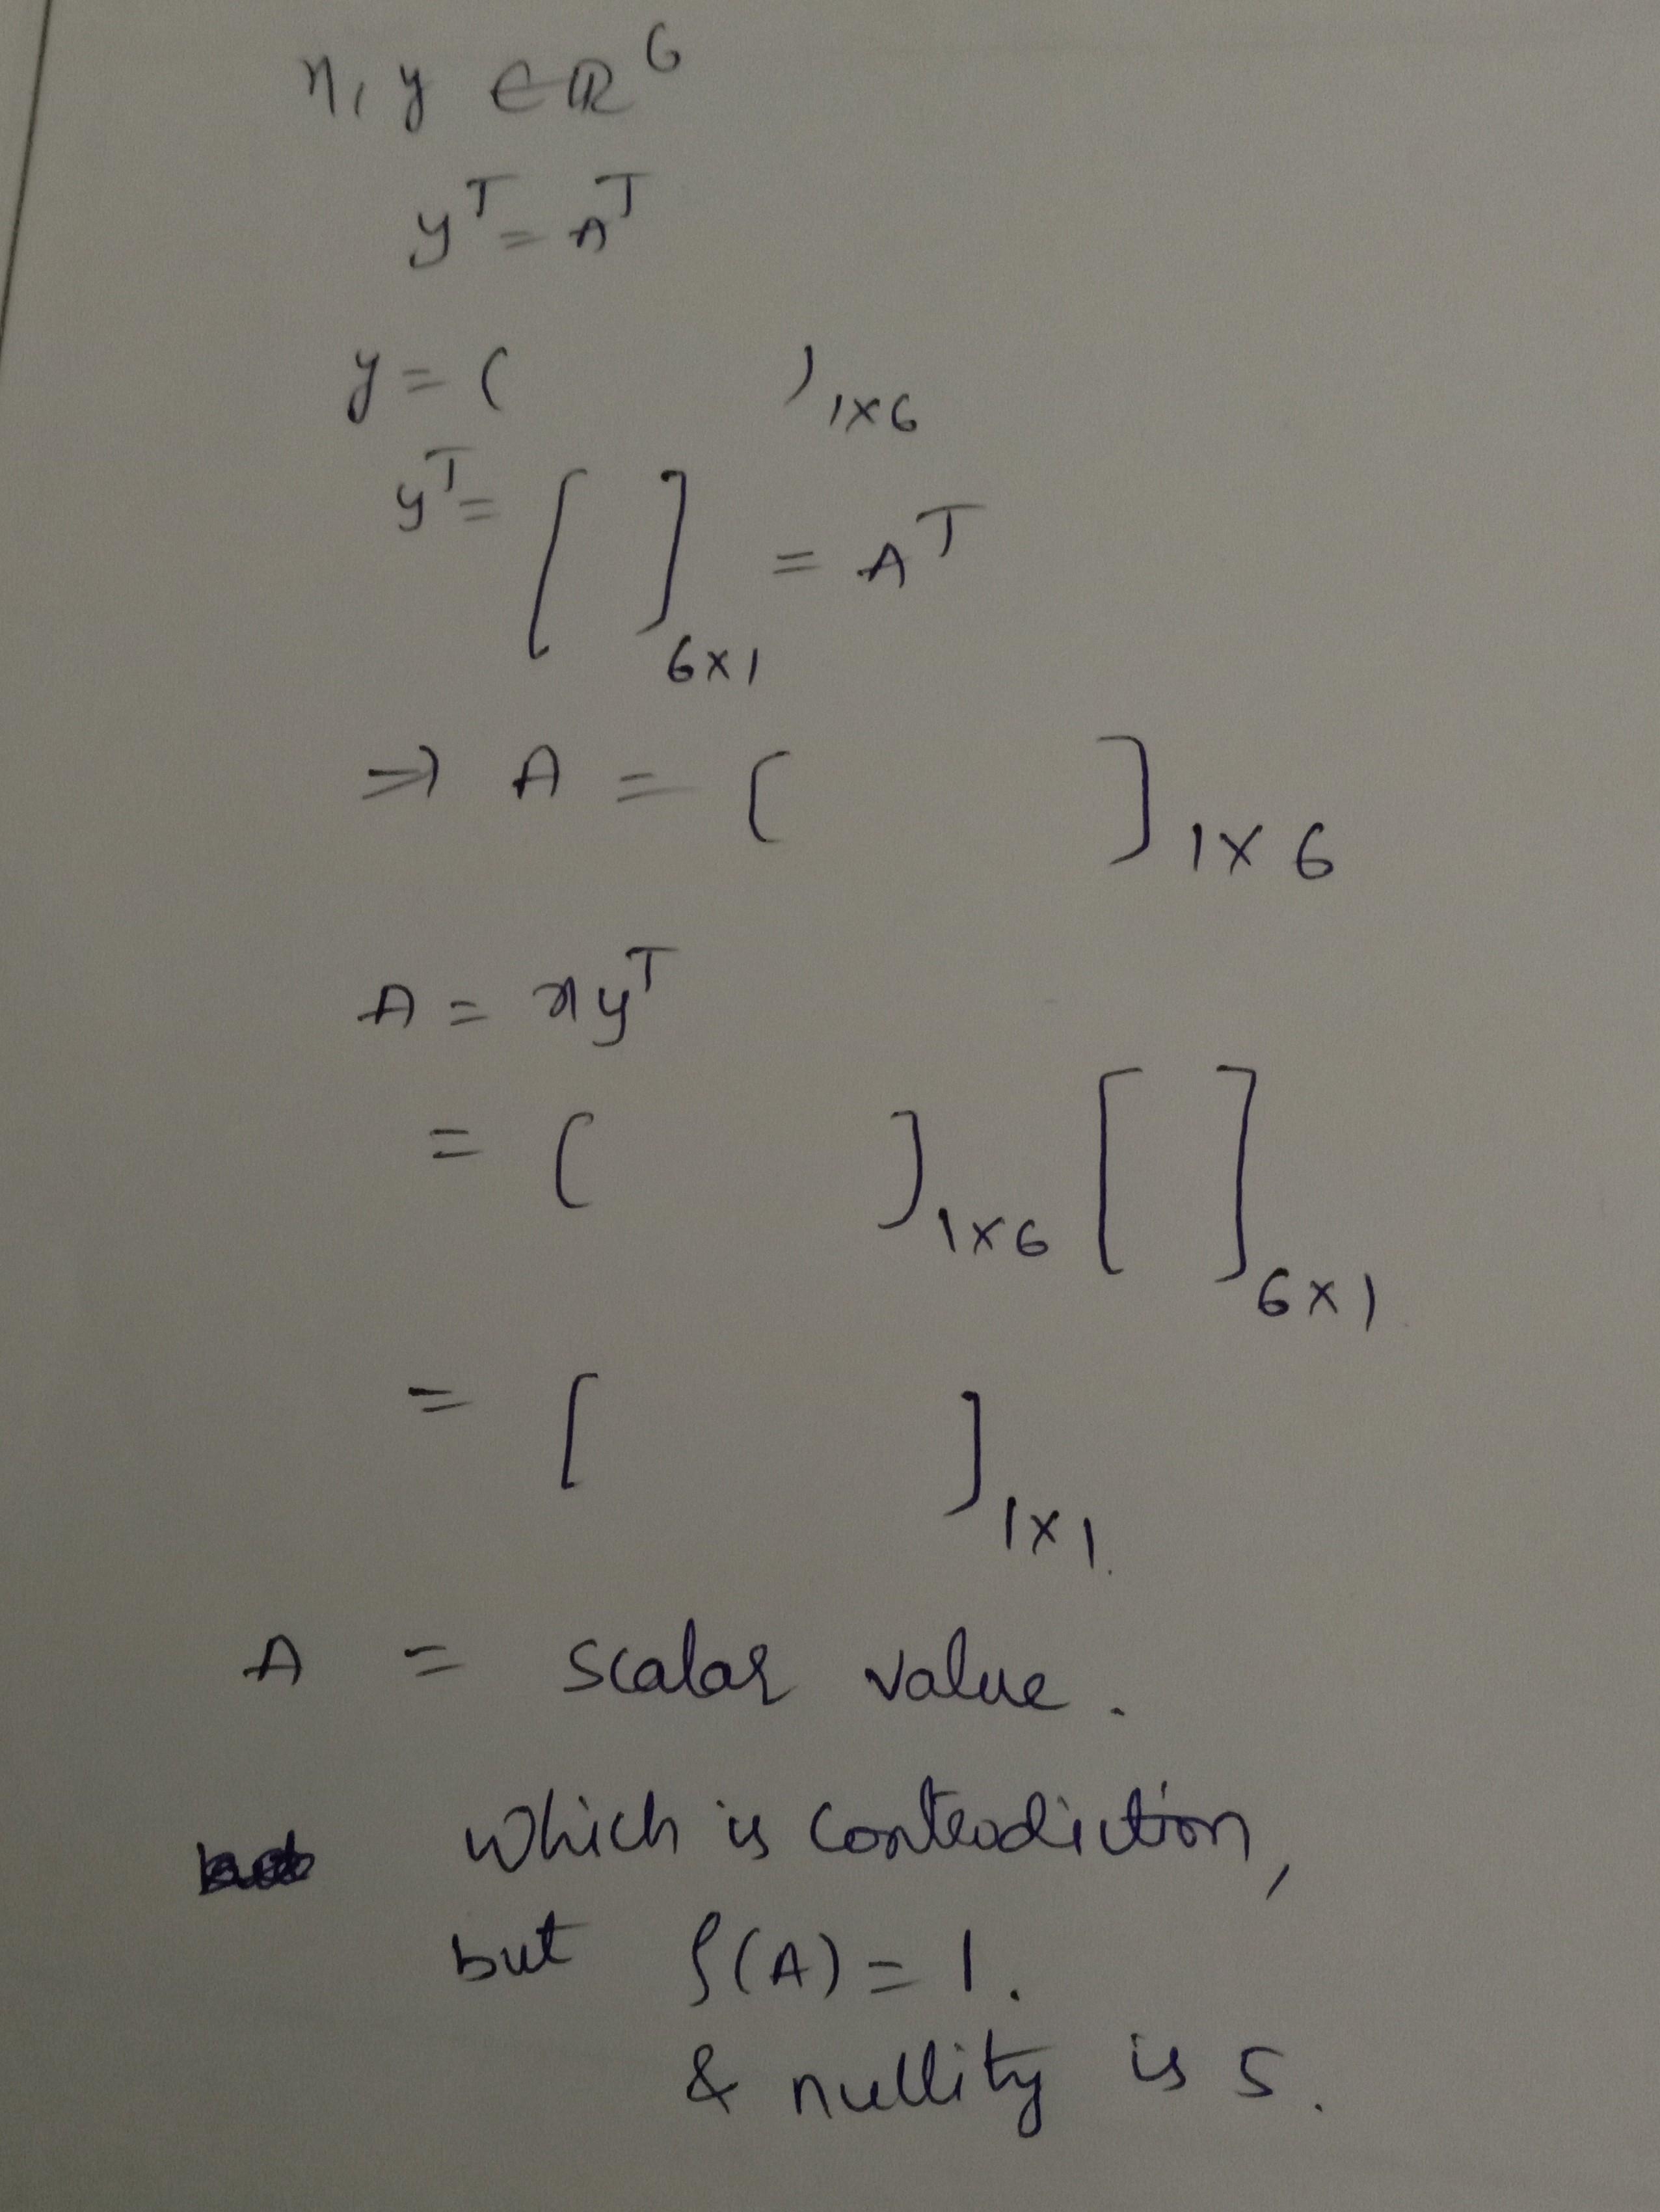 x, y ∈ ℝ^6
y^T = A^T
y = ( )_{1×6}
y^T = [ ]_{6×1} = A^T
⇒ A = [ ]_{1×6}
A = xy^T
= [ ]_{1×6} [ ]_{6×1}
= [ ]_{1×1}.
A = scalar value.
which is contradiction,
but ρ(A) = 1.
& nullity is 5.